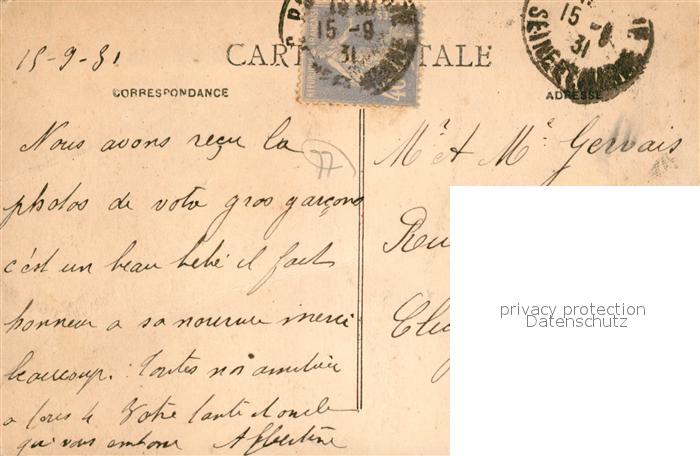 15-9-31
CARTE POSTALE
15-9
31
SEINE-ET-MARNE
15-9
31
CORRESPONDANCE
ADRESSE
Nous avons reçu la
photos de votre gros garçons
c'est un beau bébé il fait
honneur a sa nourrice merci
beaucoup. Toutes nos amitiés
a tous Votre tante
qui vous embrasse Albertine
77
Mr et Me Gervais
privacy protection
Datenschutz